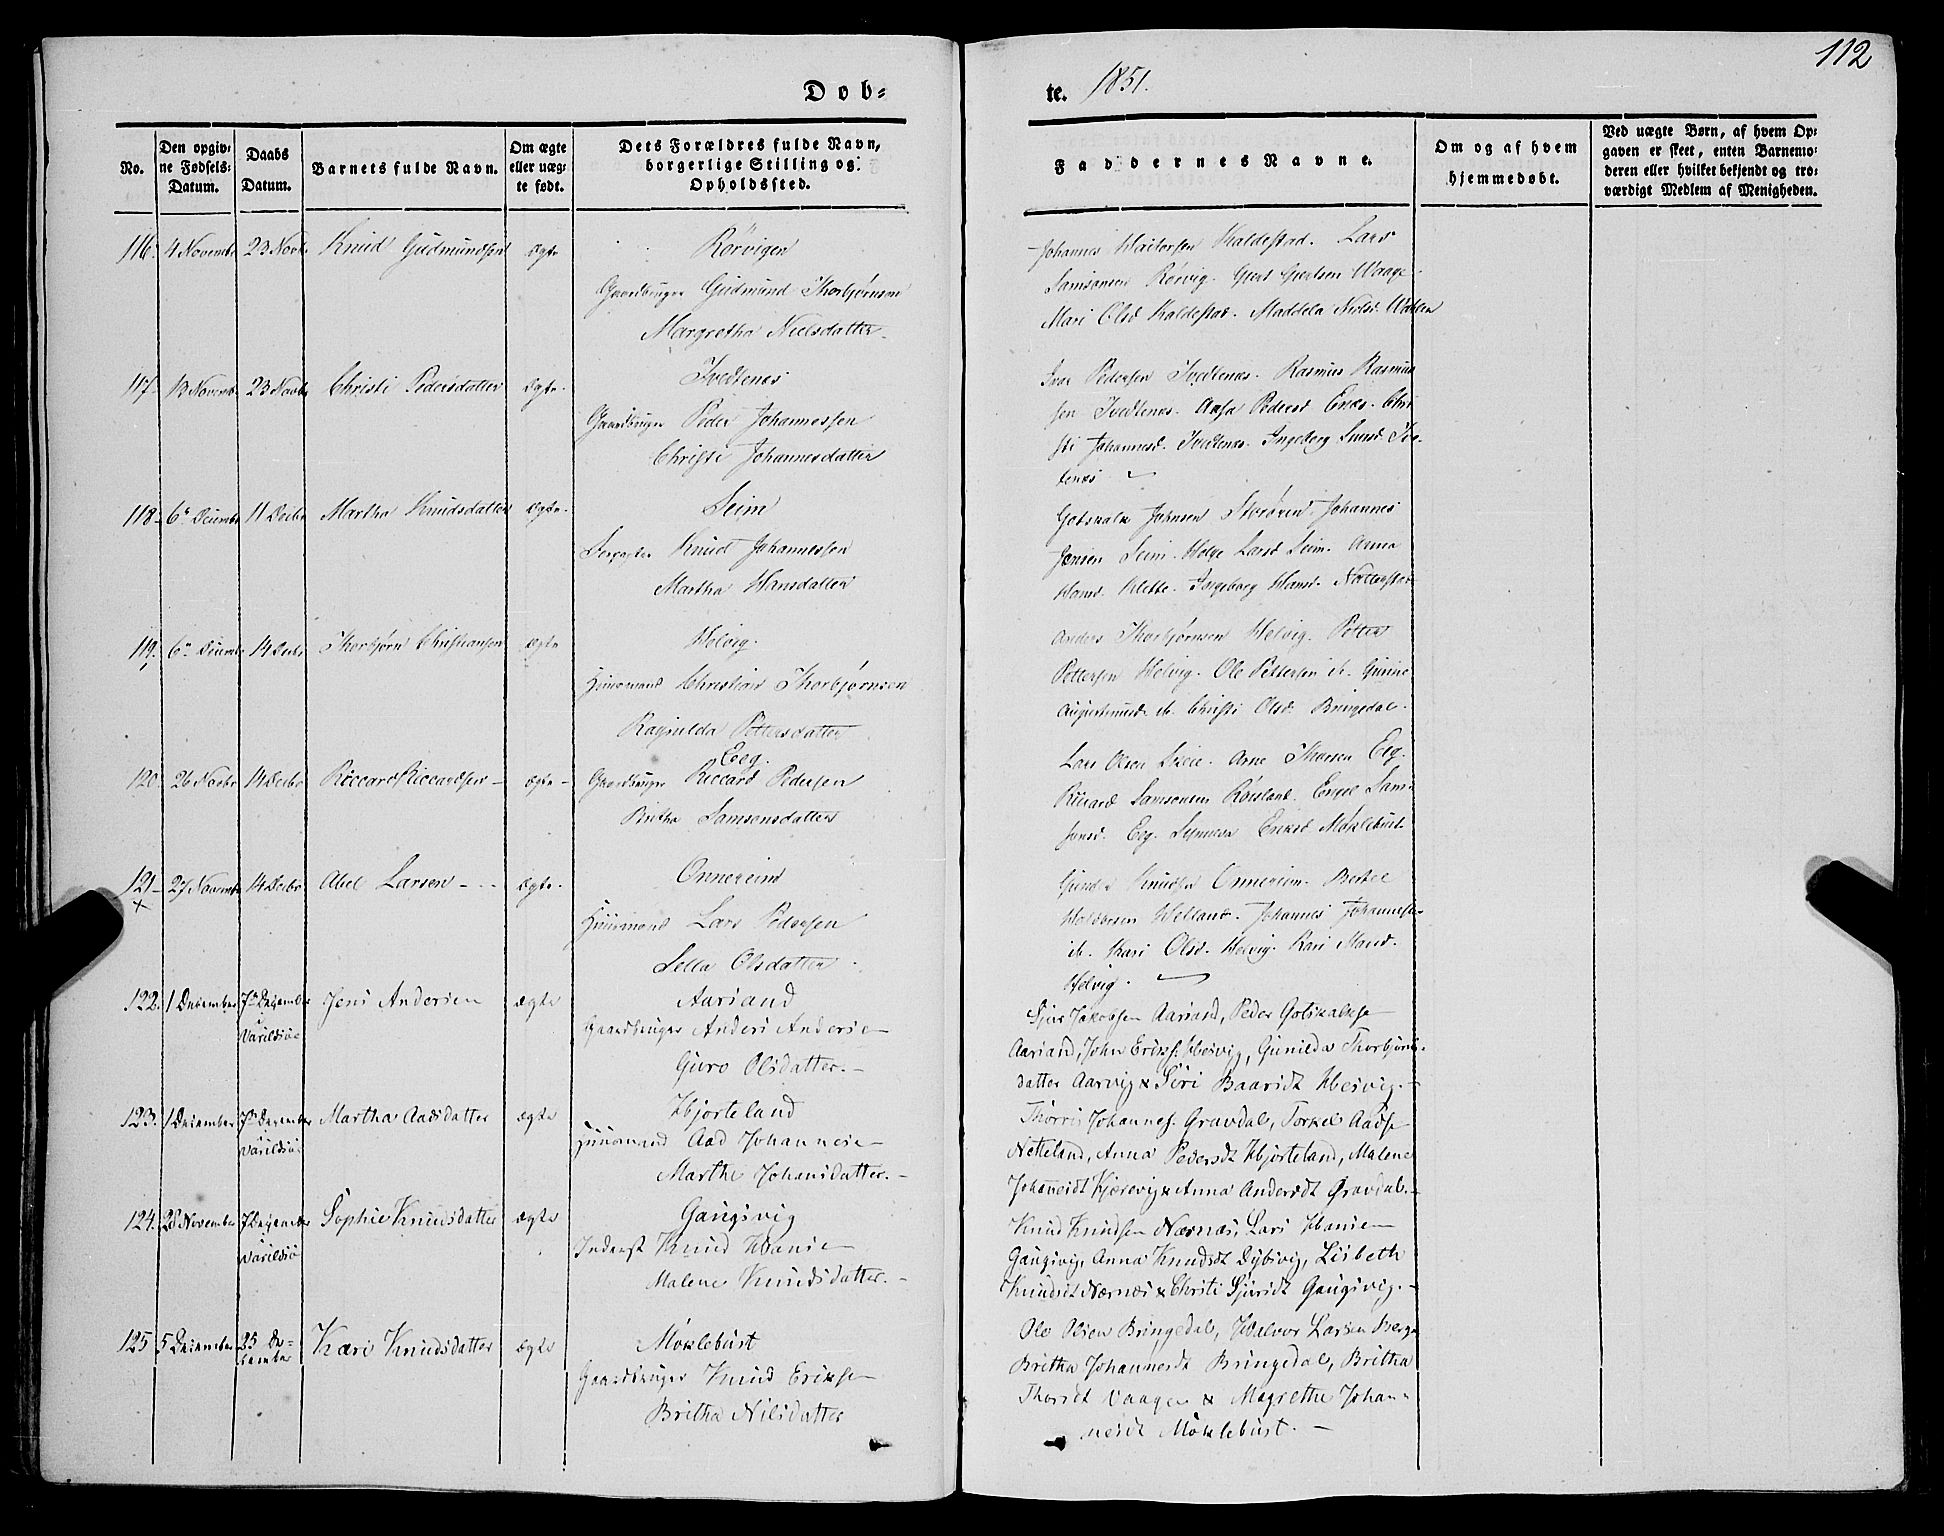 112
Døb=
te. 1851.
No.
Den opgiv=
ne Fødsels=
Datum.
Daabs
Datum.
Barnets fulde Navn.
Om ægte
eller uæg=
te født.
Dets Forældres fulde Navn,
borgerlige Stilling og
Opholdssted.
Faddernes Navne.
Om og af hvem
hjemmedøbt.
Ved uægte Børn, af hvem Op=
gaven er skeet, enten Barnemo=
deren eller hvilket bekjendt og tro=
værdigt Medlem af Menigheden.
116. 4 Novembr 23 Novbr Knud Gudmundsen ægte Rørvigen
Gaardbruger Gudmund Thorbjørnsen
Margretha Nielsdatter
Johannes Kaldestad. Lars
Samsonsen Rørvig. Gjert Gjertsen Waage.
Mari Olsd Kaldestad. Maddela Nielsd
117. 13 Novembr 23 Novbr Christi Pedersdatter ægte. Tvedtenæs
Gaardbruger Peder Johannessen
Christi Johannesdatter
Ivar Pedersen Tvedtenæs. Rasmus Rasmus
sen Tvedtenæs. Pedersd Chri
sti Johannesd. Tvedtenæs. Ingeborg Tve
tenæs
118. 6 Decembr 11 Decbr Martha Knudsdatter ægte. Seim
Knud Johannessen
Martha Hansdatter
Gotskalk Johnsen Johannes
Jensen Seim. Helge Larsd Seim. Anna
Hansd. Klette. Ingeborg Hansd.
119. 6 Decembr 14 Decbr Thorbjørn Christiansen ægte Helvig.
Huusmand Christian Thorbjørnsen
Ragnilda Pettersdatter
Anders Thorbjørnsen Helvig. Petter
Pettersen Helvig. Ole Pettersen ib. Gurine
ib. Christi Olsd. Bringedal.
120. 26 Novbr 14 Decbr Riccard Riccardsen ægte Eeg.
Gaardbruger Riccard Pedersen
Britha Samsonsdatter
Lars Olsen Arne Thorsen Eeg.
Riccard Samsonsen Røsland. Sam=
sonsd. Eeg. Synneva Eriksd Møklebust.
121 27 Novembr 14 Decbr Abel Larsen ægte. Onnereim
×
Huusmand Lars Pedersen
Sella Olsdatter
Knudsen Onnereim. Bertel
Haldorsen Helland. Johannes Johannesen
ib. Kari Olsd. Helvig. Kari Mand.
Helvig.
122. 1 December 7de December Jens Andersen ægte Aarsand
i
Varildsøe
Gaardbruger Anders Anderse
Guro Olsdatter.
Sjur Jakobsen Aarsand, Peder Gotskalkse
Aarsand, John Eriks. Hesvig, Gunilda Thorbjørns=
datter Aarvig & Siri Baarsdt Hesvig.
123. 1 December 7de December Martha Aadsdatter ægte Hjorteland
i
Varildsøe
Huusmand Aad Johannese
Marthe Johansdatter.
Thorris Johannes. Gravdal, Torkel Aadse
Netteland, Anna Pedersdt Hjorteland, Malene
Johansdt Kjærevig & Anna Andersdt Gravdal.
124. 28 November 7 December Sophie Knudsdatter ægte Gaugsvig
Varildsø
Inderst Knud Hanse
Malene Knudsdatter.
Knud Knudsen Nærnæs, Lars Hanse
Gaugsvig, Anna Knudsdt Dybsvig, Lisbeth
Knudsdt Nærnæs & Christi Sjursdt Gaugsvig.
125 5 December 25 De=
cember Kari Knudsdatter ægte Møklebust
Gaardbruger Knud Erikse
Britha Nilsdatter
Ole Olsen Bringedal, Halvor Larsen
Britha Johannesdt Bringedal, Britha
Thorsdt Vaagen & Magrethe Johan=
nesdt Møklebust.